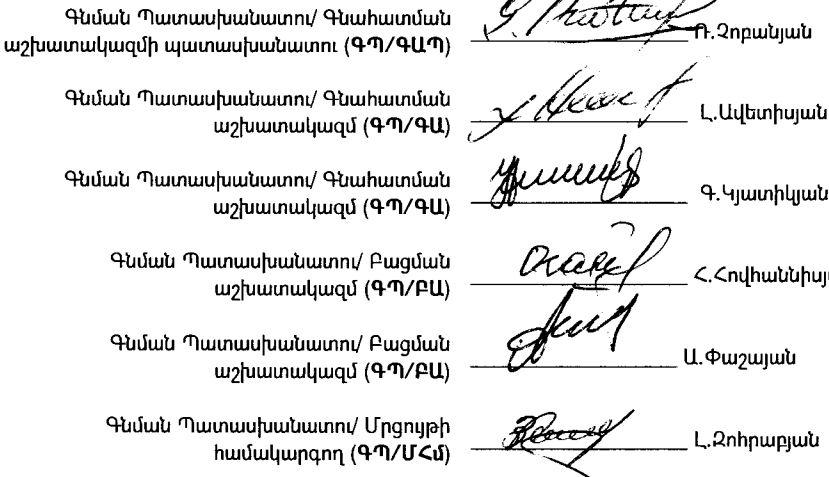 Գնման Պատասխանատու/ Գնահատման
աշխատակազմի պատասխանատու (ԳՊ/ԳԱՊ) Ռ.Չոբանյան
Գնման Պատասխանատու/ Գնահատման
աշխատակազմ (ԳՊ/ԳԱ) Լ.Ավետիսյան
Գնման Պատասխանատու/ Գնահատման
աշխատակազմ (ԳՊ/ԳԱ) Գ.Կյատիկյան
Գնման Պատասխանատու/ Բացման
աշխատակազմ (ԳՊ/ԲԱ) Հ.Հովհաննիսյ
Գնման Պատասխանատու/ Բացման
աշխատակազմ (ԳՊ/ԲԱ) Ա.Փաշայան
Գնման Պատասխանատու/ Մրցույթի
համակարգող (ԳՊ/ՄՀմ) Լ.Զոհրաբյան